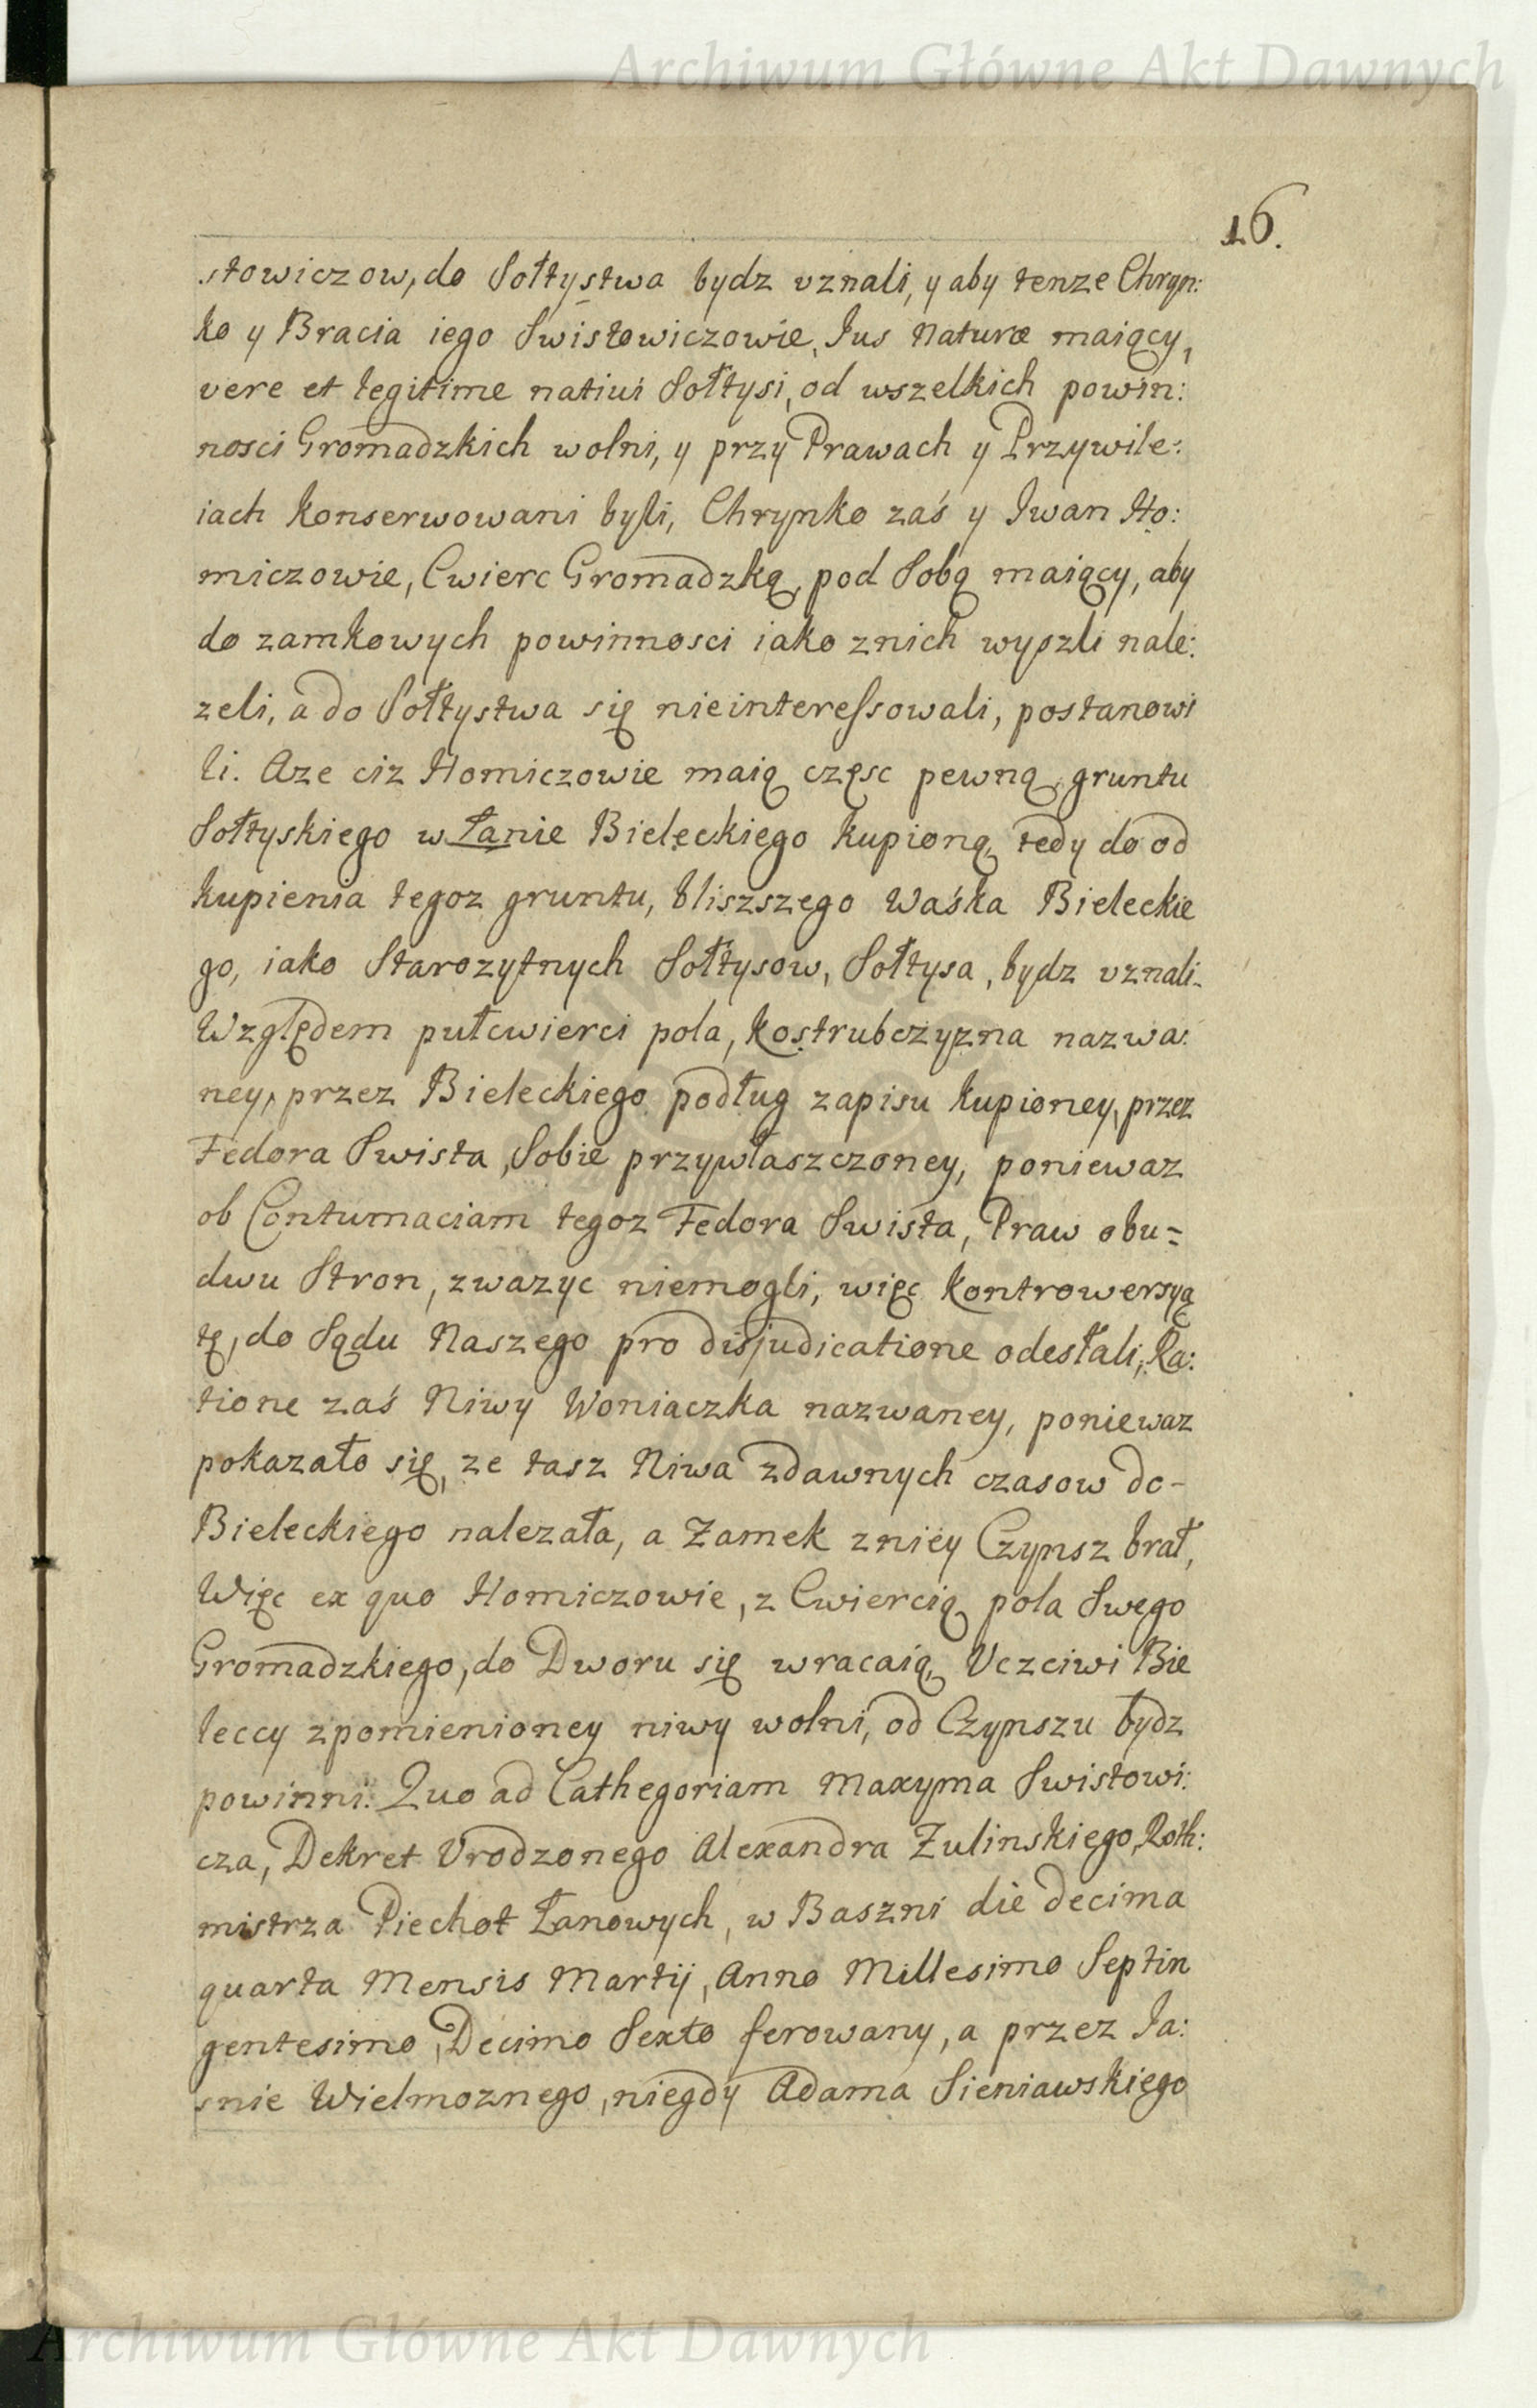 Archiwum Główne Akt Dawnych
16.
stowiczow, do Sołtystwa bydz vznali, y aby tenze Chryn:
ko y Bracia iego Swistowiczowie, Jus Naturæ maiący,
vere et legitime natiui Sołtysi, od wszelkich powin:
nosci Gromadzkich wolni, y przy Prawach y Przywile:
iach konserwowani byli, Chrynko zaś y Iwan Ho:
miczowie, Cwierc Gromadzką, pod Sobą maiący, aby
do zamkowych powinnosci iako znich wyszli nale:
zeli, a do Sołtystwa się nieinteressowali, postanowi
li. Aze ciz Homiczowie maią częsc pewną gruntu
Sołtyskiego w Łanie Bieleckiego kupioną, tedy do od
kupienia tegoz gruntu, bliszszego Waśka Bieleckie
go, iako Starozytnych Sołtysow, Sołtysa, bydz vznali.
Względem pułcwierci pola, Kostrubczyzna nazwa:
ney, przez Bieleckiego podług zapisu kupioney, przez
Fedora Swista, Sobie przywłaszczoney, poniewaz
ob Contumaciam tegoz Fedora Swista, Praw obu=
dwu Stron, zwazyc niemogli, więc kontrowersyą
tę, do Sądu Naszego pro disjudicatione odesłali, Ra:
tione zaś Niwy Woniaczka nazwaney, poniewaz
pokazało się, ze tasz Niwa zdawnych czasow do-
Bieleckiego nalezała, a Zamek zniey Czynsz brał,
Więc ex quo Homiczowie, z Cwiercią pola Swego
Gromadzkiego, do Dworu się wracaią, Vczciwi Bie
leccy zpomienioney niwy wolni, od Czynszu bydz
powinni. Quo ad Cathegoriam Maxyma Swistowi:
cza, Dekret Vrodzonego Alexandra Zulinskiego, Roth:
mistrza Piechot Łanowych, w Baszni die decima
quarta Mensis Martij, Anno Millesimo Septin
gentesimo, Decimo Sexto ferowany, a przez Ia:
snie Wielmoznego, niegdy Adama Sieniawskiego
Archiwum Główne Akt Dawnych